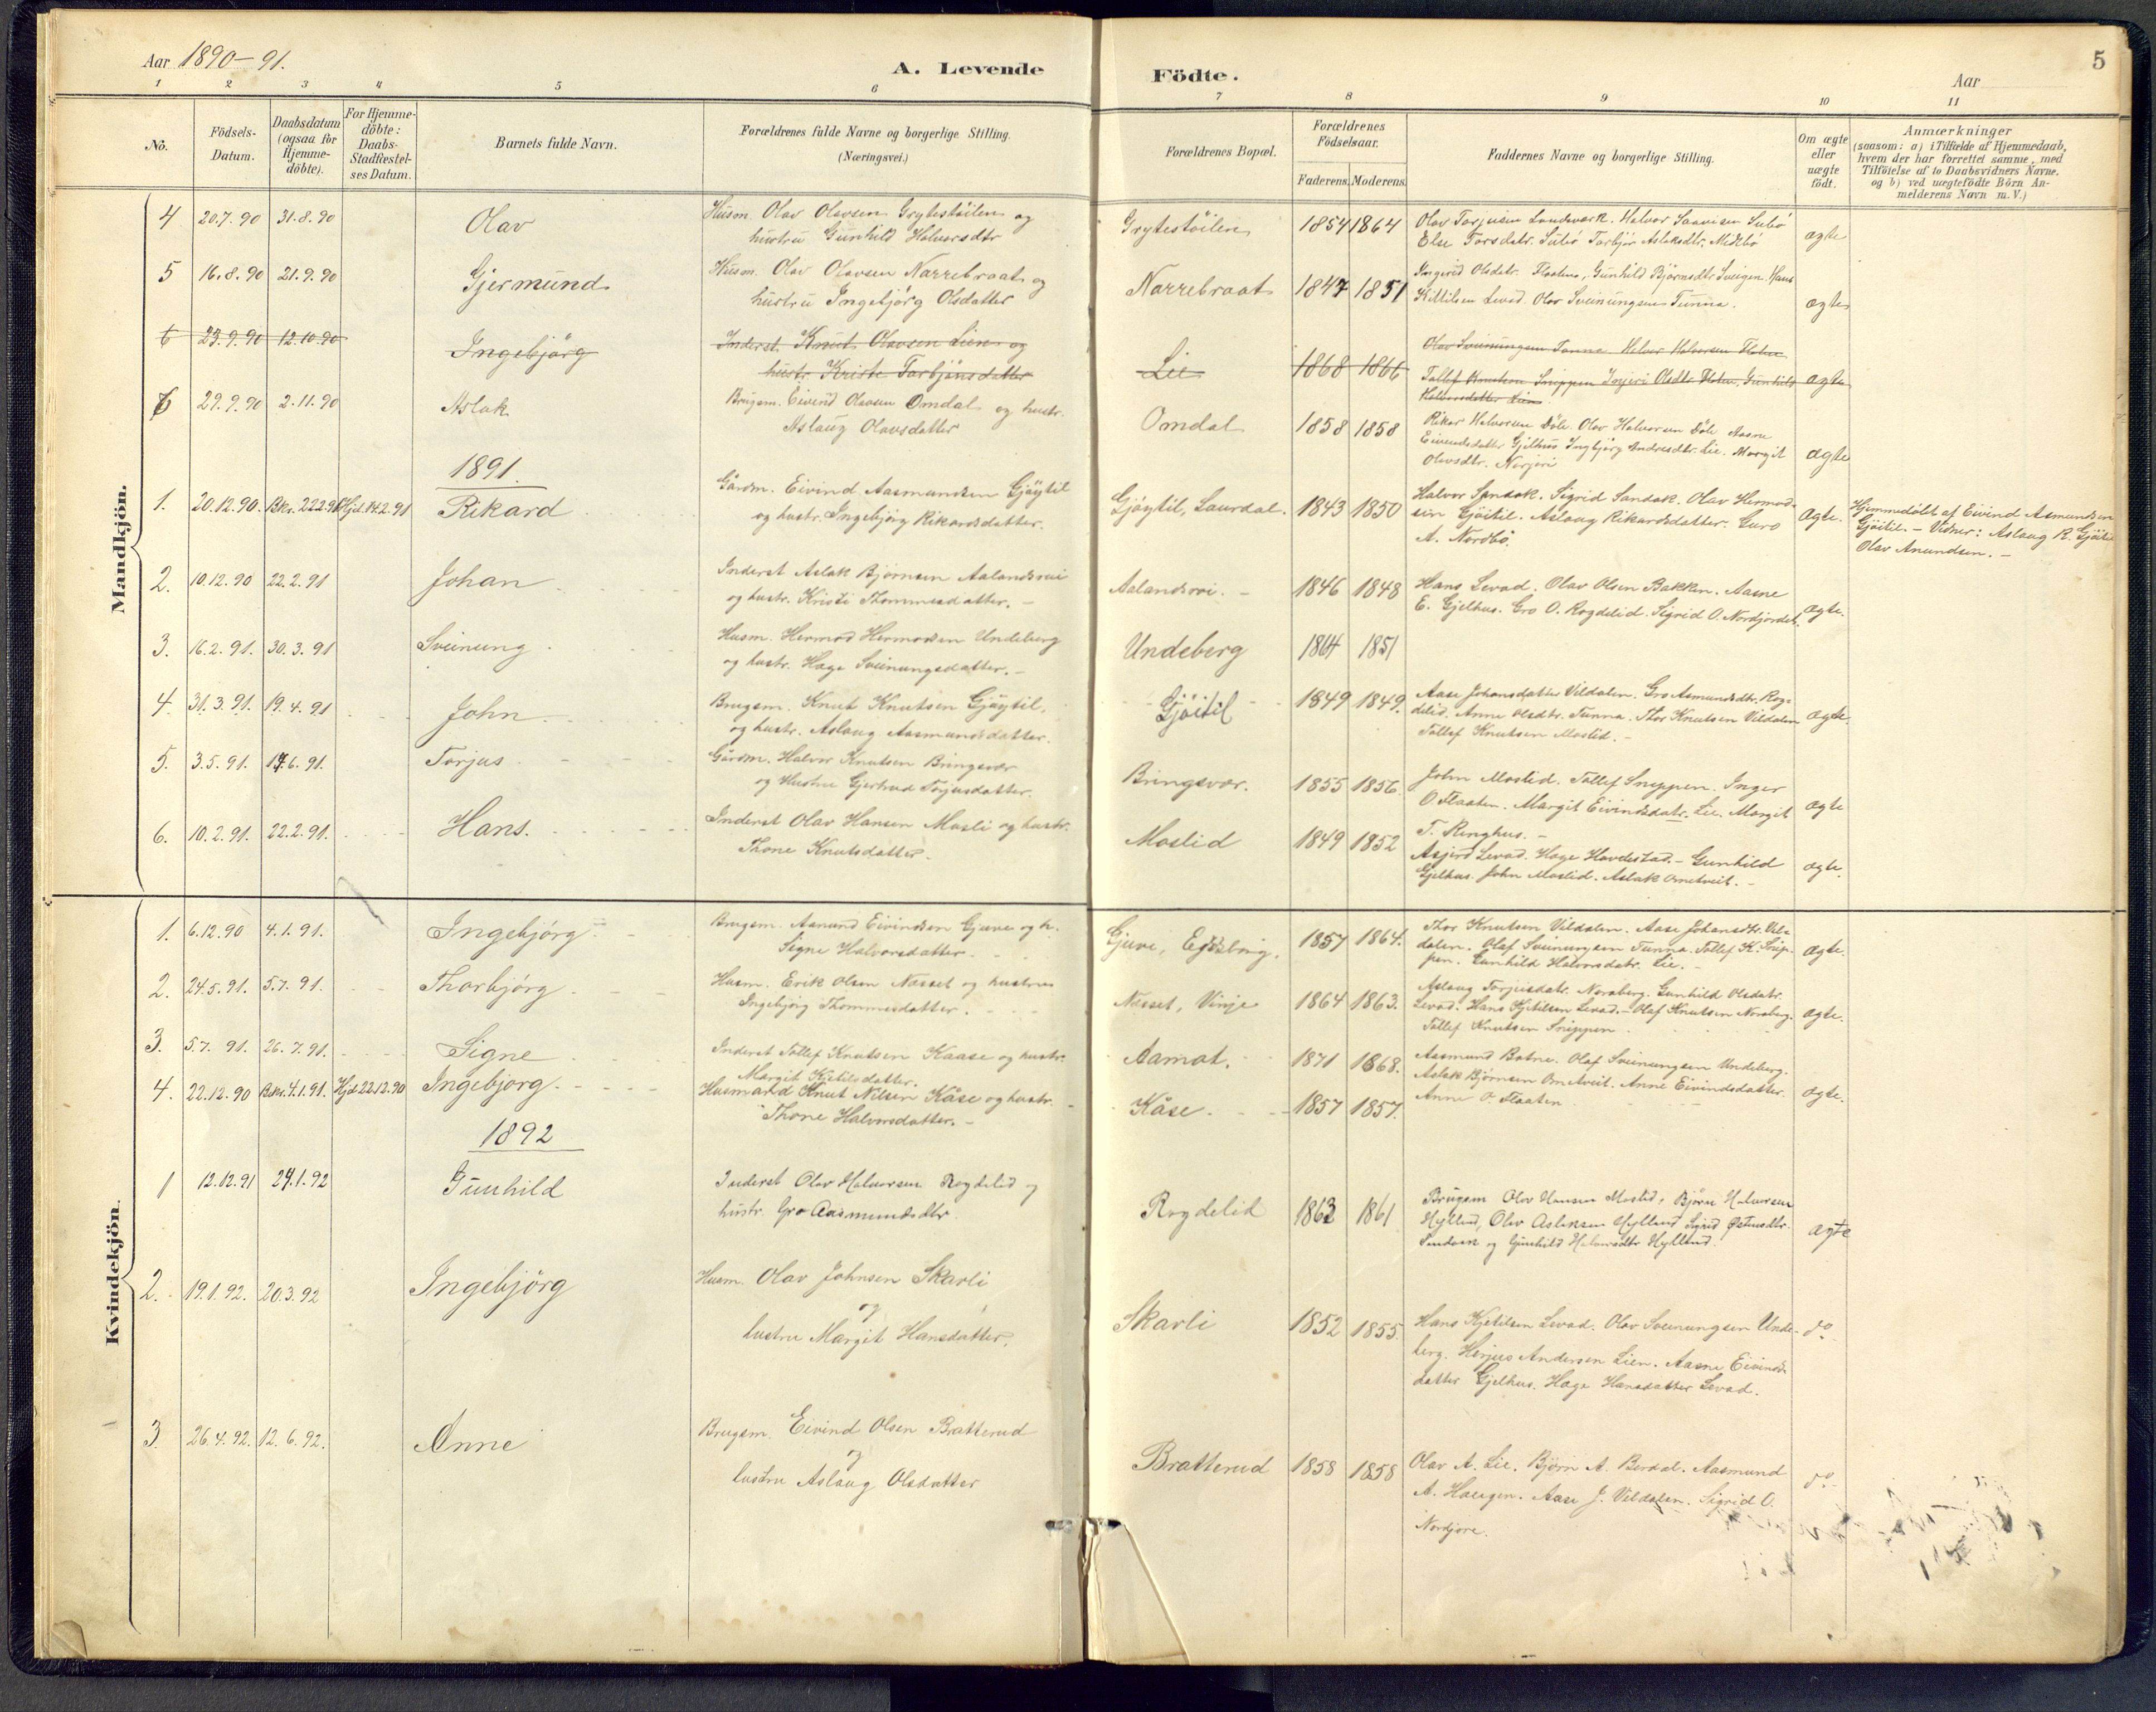 Aar 1890-91.
A. Levende
Födte.
Aar
5
1 2 3 4 5 6 7 8 9 10 11
No.
Födsels-Datum.
Daabsdatum (ogsaa for Hjemme-döbte).
For Hjemme-döbte: Daabs-Stadfæstel-ses Datum.
Barnets fulde Navn.
Forældrenes fulde Navne og borgerlige Stilling. (Næringsvei.)
Forældrenes Bopæl.
Forældrenes Födselsaar.
Faderens. Moderens.
Faddernes Navne og borgerlige Stilling.
Om ægte eller uægte födt.
Anmærkninger
(saasom: a) i Tilfælde af Hjemmedaab,
hvem der har forrettet samme, med
Tilföielse af to Daabsvidners Navne,
og b) ved uægtefödte Börn An-
melderens Navn m. V.)
Mandkjön.
4 20.7.90 31.8.90 Olav
Husm. Olav Olavsen Grytestöilen og
hustru Gunhild Halvorsdtr
Grytestöilen 1854 1864
Olav Torjusen Landsverk. Halvor Saavisen Subö
Else Torsdatr. Subö Torbjör Aslaksdtr. Midtbö
ægte
5 16.8.90 21.9.90 Gjermund
Husm. Olav Olavsen Narrebraat og
hustru Ingebjörg Olsdatter
Narrebraat 1847 1851
Ingerid Olsdatr. Flaatin, Gunhild Björnsdtr Sveigen. Hans
Kittilsen Levad. Olav Sveinungsen Tunna.
ægte
6 23.9.90 12.10.90 Ingebjörg
Inderst Knut Olavsen Lien og
hustr. Kriste Torbjönsdatter
Lie 1868 1866
Olav Sveinungsen Tunna Halvor Halvorsen
Tollef Knutsen Snippen Ingeri Olsdtr Gunhild
Halvorsdatter Lien
ægte
6 29.9.90 2.11.90 Aslak
Brugsm. Eivind Olavsen Omdal og hustr.
Aslaug Olavsdatter
Omdal 1858 1858
Rikar Halvorsen Döle. Olav Halvorsen Döle Aasne
Eivindsdatter Gjelhus Ingbjörg Andresdtr. Lie. Margit
Olavsdtr. Norjori
ægte
1891.
1. 20.12.90. Bkr. 22.2.91 Hjd. 14.2.91 Rikard
Gårdm. Eivind Aasmundsen Gjöytil
og hustr. Ingebjörg Rikardsdatter.
Gjöytil, Laurdal. 1843 1850
Halvor Sandok. Sigrid Sandok. Olav Hermod-
sen Gjöitil. Aslaug Rikardsdatter. Guro
A. Nordbö.
Ægte.
Hjemmedöbt af Eivind Asmundsen
Gjöitil. - Vidner: Aslaug R. Gjöitil
Olav Anundsen. -
2. 10.12.90 22.2.91 Johan
Inderst Aslak Bjørnsen Aalandsvei
og hustr. Kristi Thommesdatter. -
Aalandsvei. - 1846 1848
Hans Levad. Olav Olsen Bakken. Aasne
E. Gjelhus. Gro O. Rogdelid. Sigrid O. Nordjordet.
Ægte.
3. 16.2.91. 30.3.91 Sveinung
Husm. Hermod Hermodsen Undeberg
og hustr. Hage Sveinungsdatter. -
Undeberg 1864 1851
4. 31.3.91. 19.4.91 John
Brugsm. Knut Knutsen Gjöytil.
og hustr. Aslaug Aasmundsdatter.
Gjöitil 1849 1849.
Aase Johansdatter Vildalen. Gro Asmundsdtr. Rog-
delid. Anne Olsdtr. Tunna. Thor Knutsen Vildalen
Tollef Knutsen Moslid. -
Ægte.
5. 3.5.91. 14.6.91. Torjus
Gårdm. Halvor Knutsen Bringsvær
og Hustru Gjertrud Torjusdatter.
Bringsvær. 1855 1856
John Moslid. Tollef Snippen. Inger
O Flaaten. Margit Eivindsdatr. Lie. Margit
T. Ringhus. -
Ægte
6. 10.2.91. 22.2.91. Hans.
Inderst Olav Hansen Mosli og hustr.
Thone Knutsdatter.
Moslid 1849 1852
Asjerd Levad. Hage Hovdestad. - Gunhild
Gjelhus. John Moslid. Aslak Ometveit. -
ægte.
Kvindekjön.
1. 6.12.90 4.1.91. Ingebjörg.
Brugsm. Asmund Eivindsen Gjuve og h.
Signe Halvorsdatter.
Gjuve, 1857 1864.
Thor Knutsen Vildalen. Aase Johansdtr. Vil-
dalen. Olaf Sveinungsen Tunna. Tollef K. Snip-
pen. Gunhild Halvorsdatr. Lie. -
Ægte.
2. 24.5.91. 5.7.91. Thorbjörg
Husm. Erik Olsen Næsset og hustru
Ingebjörg Thommesdatter.
Næsset, Vinje 1864 1863.
Aslaug Torjusdatr. Noraberg. Gunhild Olsdatr.
Levad. Hans Kjetilsen Levad. - Olaf Knutsen Noraberg.
Tollef Knutsen Snippen.
Ægte.
3. 5.7.91. 26.7.91. Signe
Inderst Tollef Knutsen Kaase og hustr.
Margit Kjetilsdatter.
Aamot. 1871 1868.
Aasmund Botne. Olaf Sveinungsen Undeberg.
Aslak Bjørnsen Ometveit. Anne Eivindsdatter.
Anne O. Flaaten
4. 22.12.90 Bkr. 4.1.91. Hjd. 22.12.90 Ingebjorg.
Husmand Knut Nilsen Kåse og hustr.
Thone Halvorsdatter. -
Kåse. 1857 1857.
Ægte.
1892
1 12.12.91 24.1.92 Gunhild
Inderst Olav Halvorsen Rogdelid og
hustr. Gro Aasmundsdtr.
Rogdelid 1863 1861
Brugsm Olav Hansen Moslid, Björn Halvorsen
Hylland, Olav Aslaksen Hylland Sigrid Østensdtr.
Sandok og Gunhild Halvorsdtr Hylland.
ægte
2. 19.1.92. 20.3.92 Ingebjörg
Husm. Olav Johnsen Skarli
og
hustru Margit Hansdatter.
Skarli 1852 1855.
Hans Kjetilsen Levad. Olav Sveinungsen Unde-
berg. Herjus Andersen Lien. Aasne Eivinds-
datter Gjelhus. Hage Hansdatter Levad.
do.
3. 26.4.92. 12.6.92. Anne
Brugsm. Eivind Olsen Bratterud
og
hustru Aslaug Olsdatter
Bratterud 1858 1858
Olav A. Lie. Bjørn A. Berdal. Aasmund
A. Haugen. Aase J. Vildalen. Sigrid O.
Nordjore.
do.